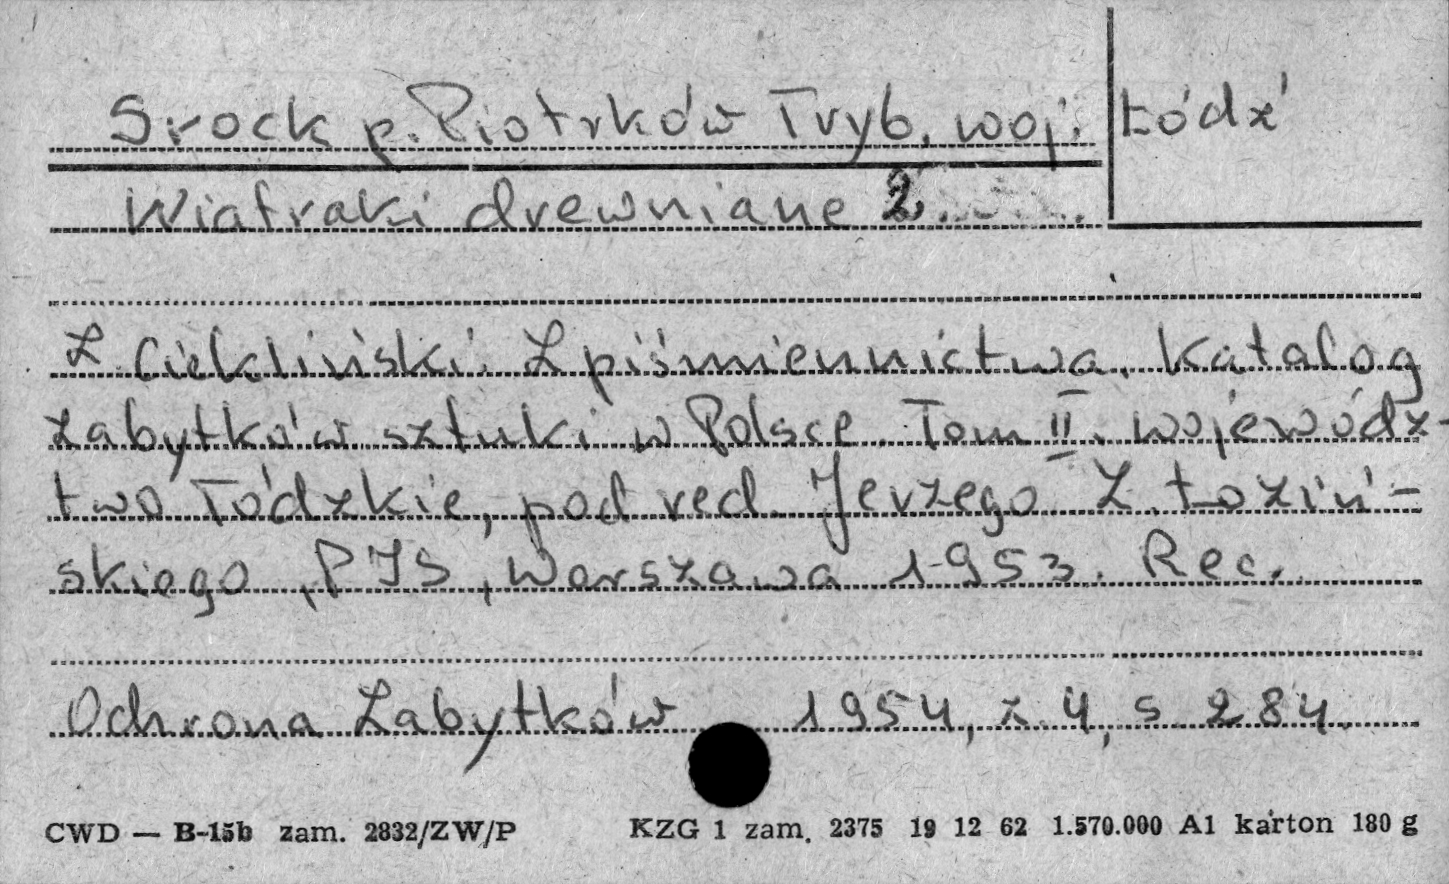 Srock p. Piotrków Tryb. woj. Łódź
Wiatraki drewniane 2
Z. Ciekliński. Z piśmiennictwa. Katalog
zabytków sztuki w Polsce. Tom II. wojewódz-
two łódzkie, pod red. Jerzego Z. Łoziń-
skiego, PIS, Warszawa 1953. Rec.
Ochrona Zabytków 1954, z. 4, s. 284.
CWD — B-15b zam. 2832/ZW/P KZG 1 zam. 2375 19 12 62 1.570.000 A1 karton 180 g